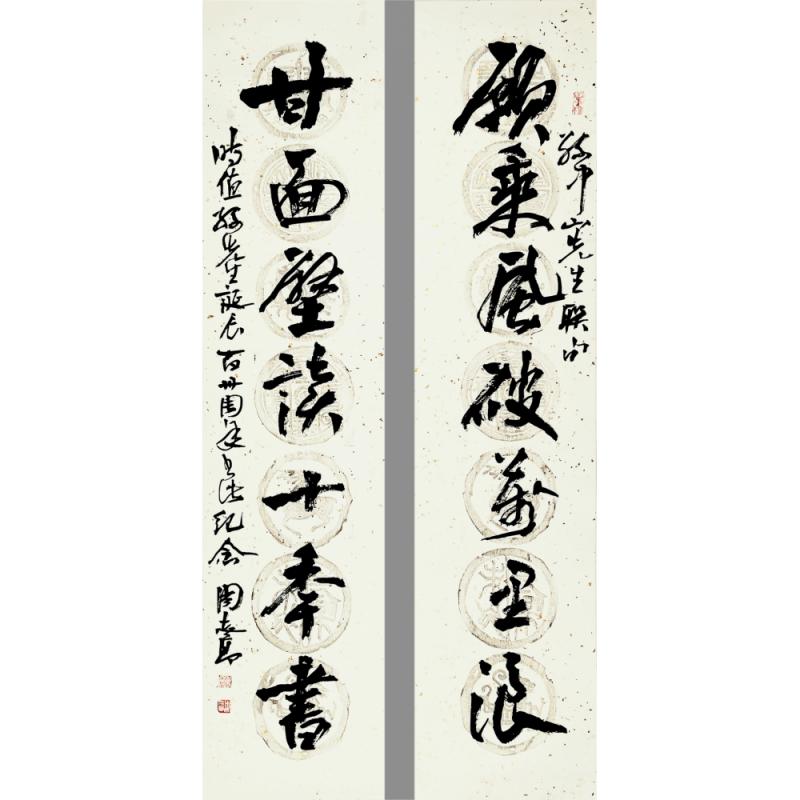 孫中山先生聯句
願乘風破萬里浪
甘面壁讀十秊書
時值孫先生誕辰百卅周年書法紀念 陶